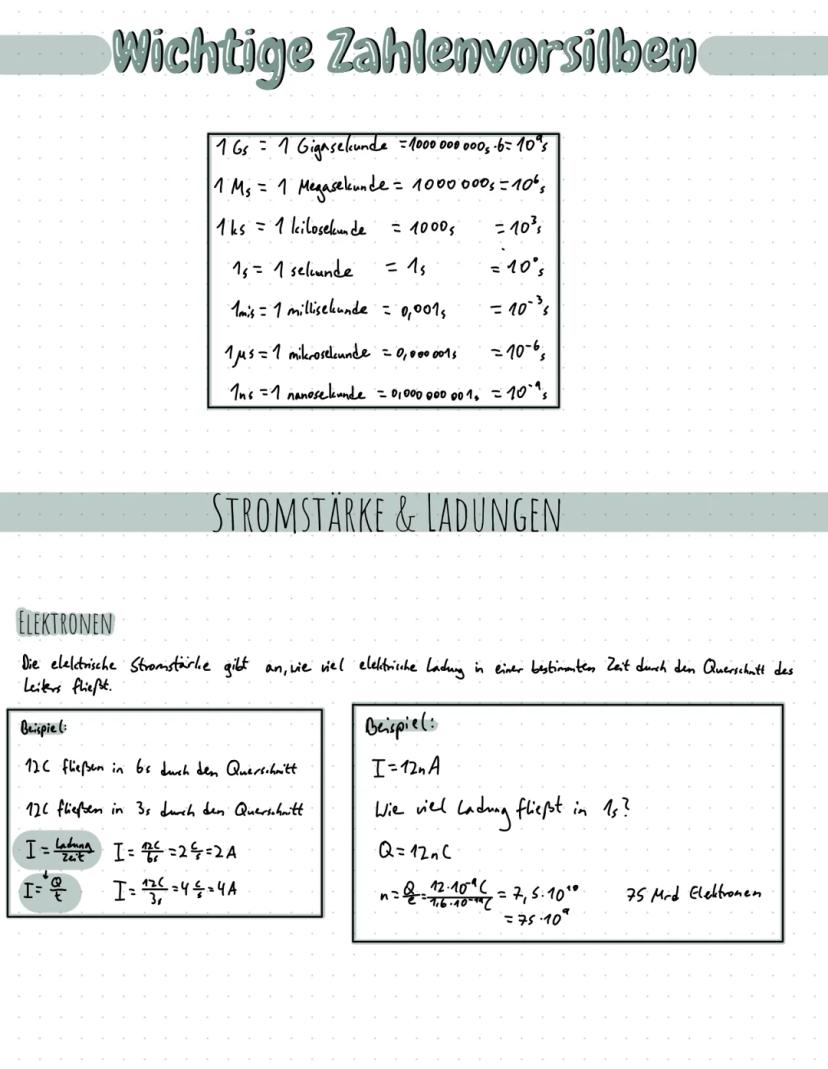 Wichtige Zahlenvorsilben
1 Gs = 1 Gigasekunde = 1000 000 000s · 6 = 10⁹s
1 Ms = 1 Megasekunde = 1000 000s = 10⁶s
1 ks = 1 kilosekunde = 1000s = 10³s
1s = 1 sekunde = 1s = 10⁰s
1mis = 1 millisekunde = 0,001s = 10⁻³s
1µs = 1 mikrosekunde = 0,000 001s = 10⁻⁶s
1ns = 1 nanosekunde = 0,000 000 001s = 10⁻⁹s
STROMSTÄRKE & LADUNGEN
ELEKTRONEN
Die elektrische Stromstärke gibt an, wie viel elektrische Ladung in einer bestimmten Zeit durch den Querschnitt des
Leiters fließt.
Beispiel:
12C fließen in 6s durch den Querschnitt
12C fließen in 3s durch den Querschnitt
I = Ladung/Zeit I = 12C/6s = 2 C/s = 2A
I = Q/t I = 12C/3s = 4 C/s = 4A
Beispiel:
I = 12nA
Wie viel Ladung fließt in 1s?
Q = 12nC
n = Q/e = 12·10⁻⁹C/1,6·10⁻¹⁹C = 7,5·10¹⁰ 75 Mrd Elektronen
= 75·10⁹